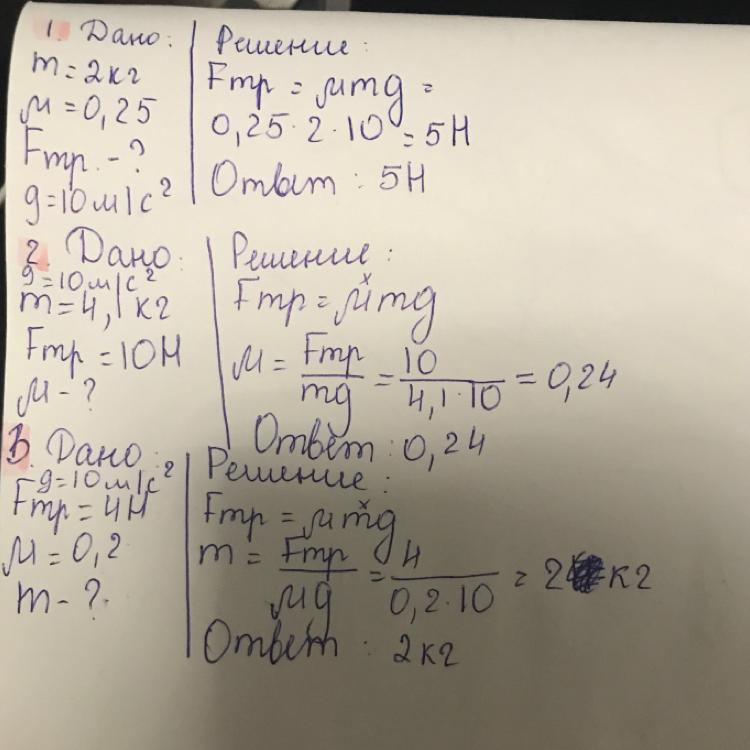 1. Дано:
m = 2кг
μ = 0,25
Fтр. - ?
g=10м/с²
Решение:
Fтр = μmg =
0,25·2·10 = 5Н
Ответ: 5Н
2. Дано:
g=10м/с²
m=4,1кг
Fтр =10Н
μ - ?
Решение:
Fтр = μˣmg
μ = Fтр/mg = 10/4,1·10 = 0,24
Ответ: 0,24
3. Дано:
g=10м/с²
Fтр = 4Н
μ = 0,2
m - ?
Решение:
Fтр = μmˣg
m = Fтр/μg = 4/0,2·10 = 2 кг
Ответ: 2кг